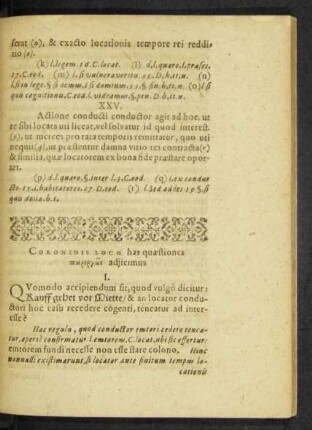 serat (o), & exacto locationis tempore rei reddi-
tio (o).
(k) l.legem. 10.C.locat. (l) d.l.quæro.§.præses.
17.C.eod. (m) l.si vulneraveris 25.D.h.tt.n. (n)
(o) l.si
quo cognitionis.C.eod.l.videamus.§.pen.D.h.tt.n.
XXV.
Actione conducti conductor agit ad hoc, ut
re sibi locata uti liceat, vel solvatur id quod interest
(p), ut merces pro rata temporis remittatur, quo uti
nequit (q), ut præstentur damna vitio rei contracta (r)
& similia, quæ locatorem ex bona fide præstare opor-
tet.
(p) d.l.quæro.§.inter l.3.C.eod. (q) l.ex condu-
cto 15.l.habitatores. 27.D.eod. (r) l.sed addes 19 §.si
quis dolia.h.t.
CORONIDIS LOCO has quæstiones
adjicimus
I.
QVomodo accipiendum sit, quod vulgò dicitur:
Kauff gehet vor Miette/ & an locator condu-
ctori hoc casu recedere cogenti, teneatur ad inter-
esse?
Hæc regula, quod conductor emtori cedere tenea-
tur, apertè confirmatur l.emtorem.C.locat.ubi sic effertur:
emtorem fundi necesse non esse stare colono. Hinc
nonnulli existimarunt, si locator ante finitum tempus lo-
cationis